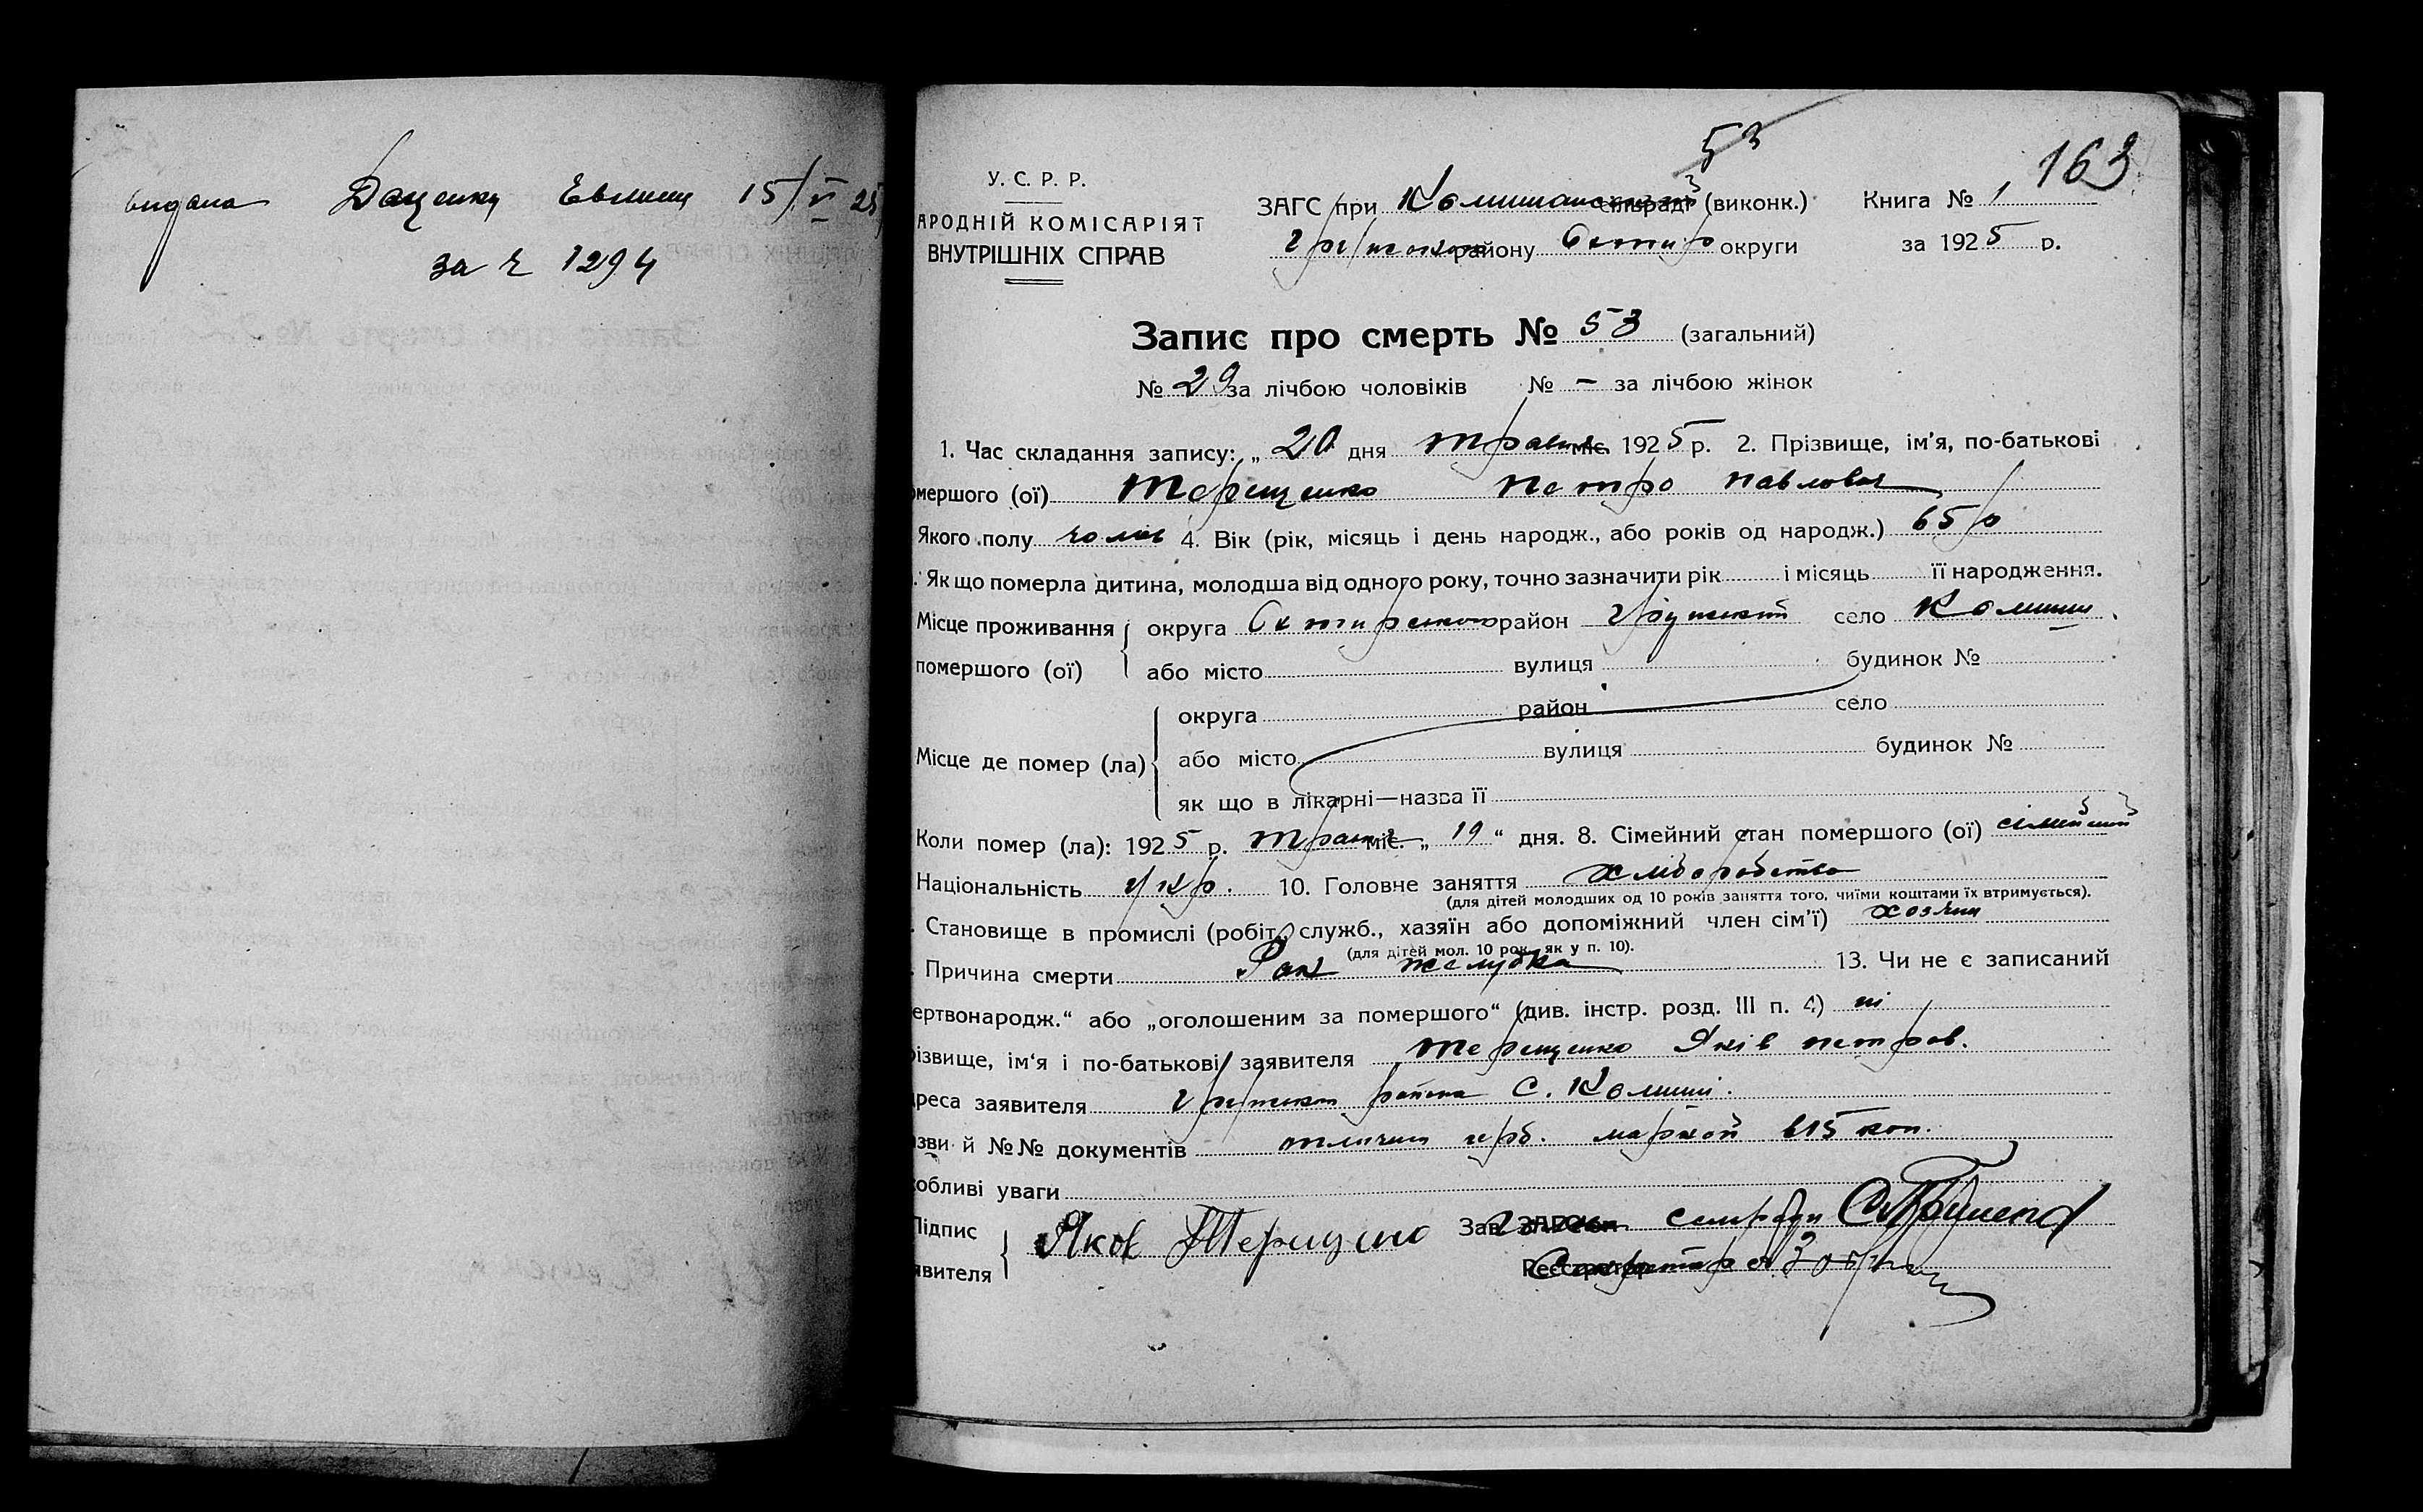 видана Даценку Евмени 15/V 25
за № 1294
53
163
У. С. Р. Р.
АРОДНІЙ КОМІСАРІЯТ
ВНУТРІШНІХ СПРАВ
ЗАГС при Комишанській сільраді (виконк.) Книга № 1
району Охтир округи за 1925 р.
Запис про смерть № 53 (загальний)
№ 29 за лічбою чоловіків № – за лічбою жінок
1. Час складання запису: „ 20 дня травня міс. 1925 р. 2. Прізвище, ім’я, по-батькові
омершого (ої) Терещенко Петро Павлович
Якого полу чолов 4. Вік (рік, місяць і день народж., або років од народж.) 65 р
. Як що померла дитина, молодша від одного року, точно зазначити рік і місяць її народження.
Місце проживання округа Охтирського район Грунський село Комиши
помершого (ої) або місто вулиця будинок №
округа район село
Місце де помер (ла) або місто вулиця будинок №
як що в лікарні—назва її
Коли помер (ла): 1925 р. травня міс. „ 19 “ дня. 8. Сімейний стан помершого (ої) сімейний
Національність укр. 10. Головне заняття хліборобство
(для дітей молодших од 10 років заняття того, чиїми коштами їх втримується).
. Становище в промислі (робіт., служб., хазяїн або допоміжний член сім’ї) хозяин
(для дітей мол. 10 рок. як у п. 10).
. Причина смерти Рак желудка 13. Чи не є записаний
ертвонародж.“ або „оголошеним за помершого“ (див. інстр. розд. III п. 4) ні
різвище, ім‘я і по-батькові заявителя Терещенко Яків Петров.
дреса заявителя района С. Комиші.
азви й №№ документів герб. маркой в 15 коп.
собливі уваги
Підпис
явителя
Яков Терещенко Зав. ЗАГСом
Реєстратор